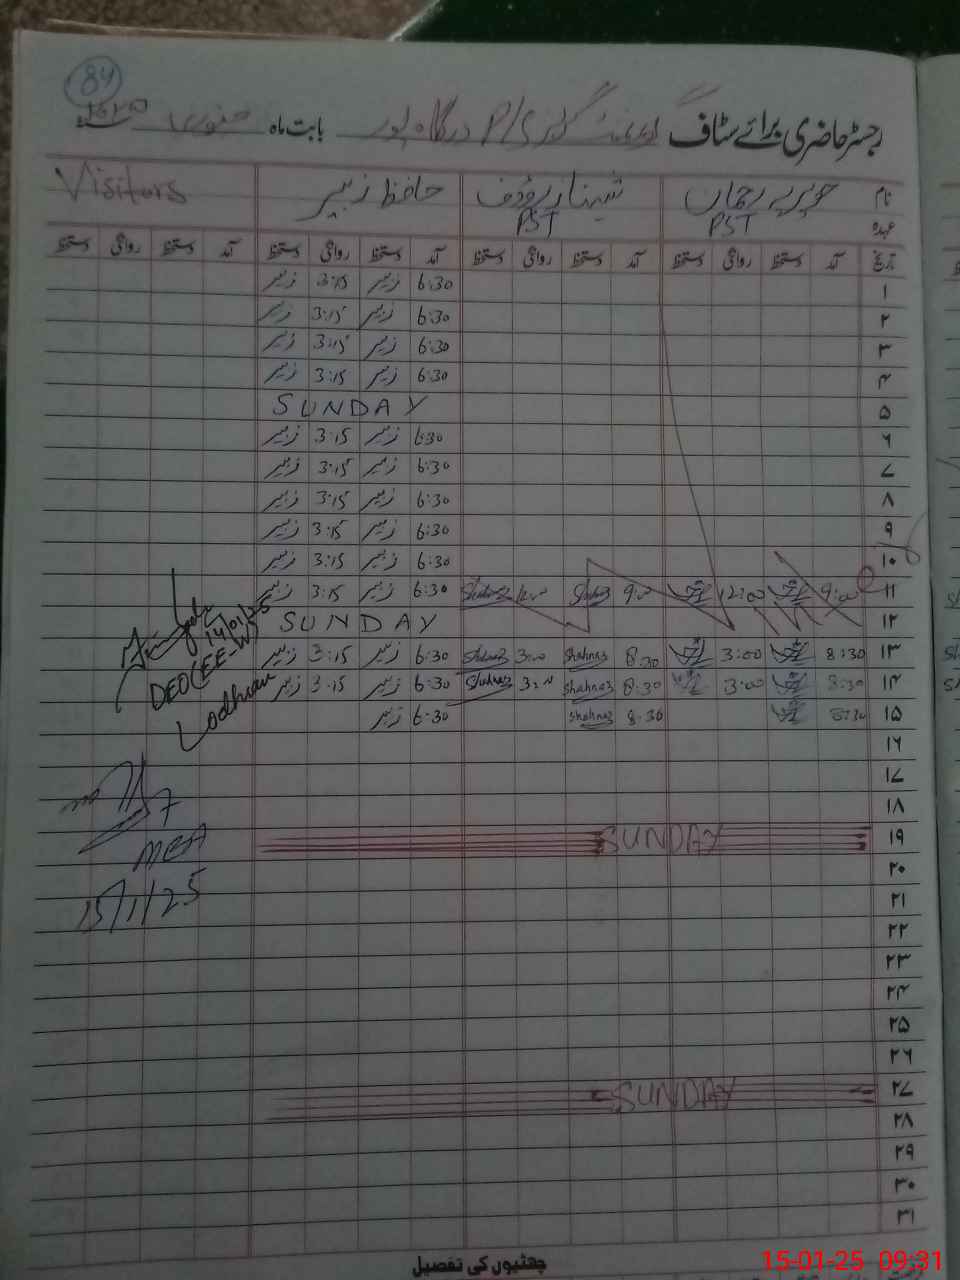 84
رجسٹر حاضری برائے سٹاف گورنمنٹ گرلز P/S درگاہ پور بابت ماہ جنوری
نام جویریہ رحمان شہناز رؤف حافظ زبیر Visitors
عہدہ PST PST
تاریخ آمد دستخط روانگی دستخط آمد دستخط روانگی دستخط آمد دستخط روانگی دستخط آمد دستخط روانگی دستخط
۱ 6:30 زبیر 3:15 زبیر
۲ 6:30 زبیر 3:15 زبیر
۳ 6:30 زبیر 3:15 زبیر
۴ 6:30 زبیر 3:15 زبیر
۵ SUNDAY
۶ 6:30 زبیر 3:15 زبیر
۷ 6:30 زبیر 3:15 زبیر
۸ 6:30 زبیر 3:15 زبیر
۹ 6:30 زبیر 3:15 زبیر
۱۰ 6:30 زبیر 3:15 زبیر
۱۱ 9:00 12:00 9:00 Shahnaz 12:00 Shahnaz 6:30 زبیر 3:15 زبیر
۱۲ SUNDAY
۱۳ 8:30 3:00 8:30 Shahnaz 3:00 Shahnaz 6:30 زبیر 3:15 زبیر
۱۴ 8:30 3:00 8:30 Shahnaz 3:00 Shahnaz 6:30 زبیر 3:15 زبیر
۱۵ 8:30 8:30 Shahnaz 6:30 زبیر
14/01/25
DEO(EE-W)
Lodhran
۱۶
۱۷
۱۸
۱۹ SUNDAY
MEA
15/1/25
۲۰
۲۱
۲۲
۲۳
۲۴
۲۵
۲۶
۲۷ SUNDAY
۲۸
۲۹
۳۰
۳۱
چھٹیوں کی تفصیل
15-01-25 09:31